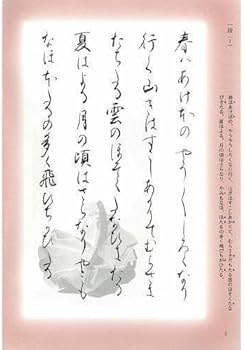 一段（1）
春はあけぼの。やうやうしろくなり行く、山ぎはすこしあかりて、むらさきだちたる雲のほそくたな
びきたる。夏はよる。月の頃はさらなり、やみもなほ、ほたるの多く飛びちがひたる。
春はあけぼの
やうやうしろくなり
行く山ぎはすこしあかりてむらさき
だちたる雲のほそくたなびきたる
夏はよる月の頃はさらなりやみも
なほほたるの多く飛びちがひたる